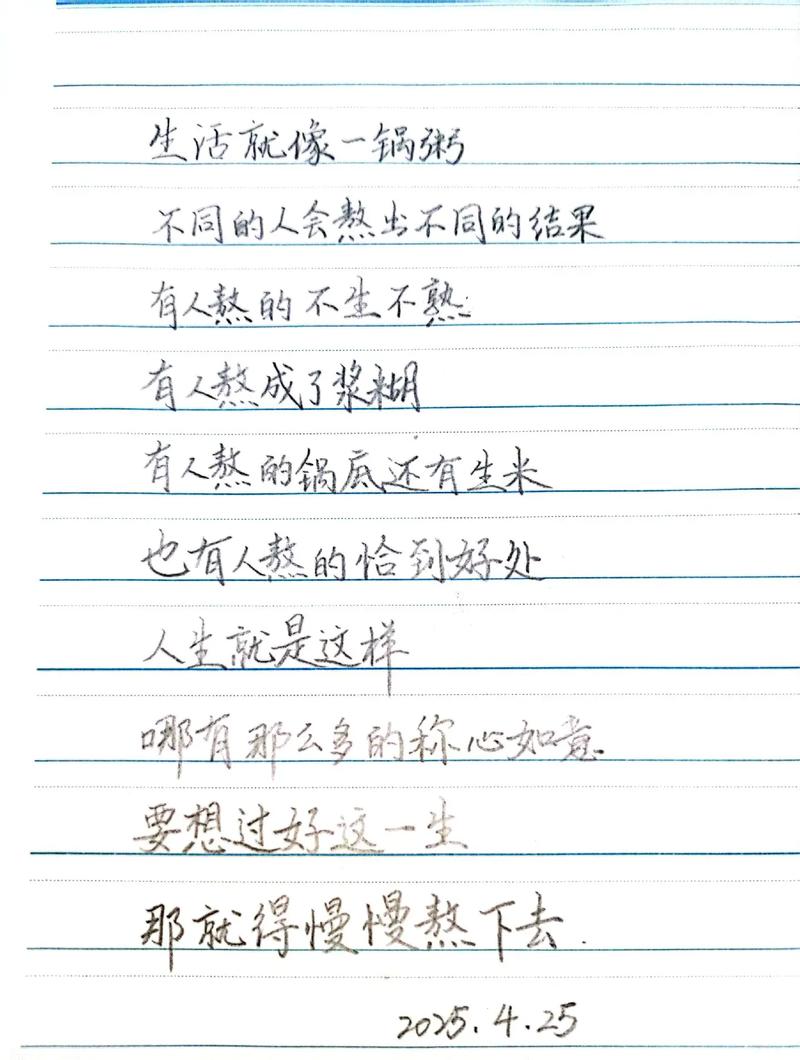 生活就像一锅粥
不同的人会熬出不同的结果
有人熬的不生不熟
有人熬成了浆糊
有人熬的锅底还有生米
也有人熬的恰到好处
人生就是这样
哪有那么多的称心如意.
要想过好这一生
那就得慢慢熬下去.
2025.4.25